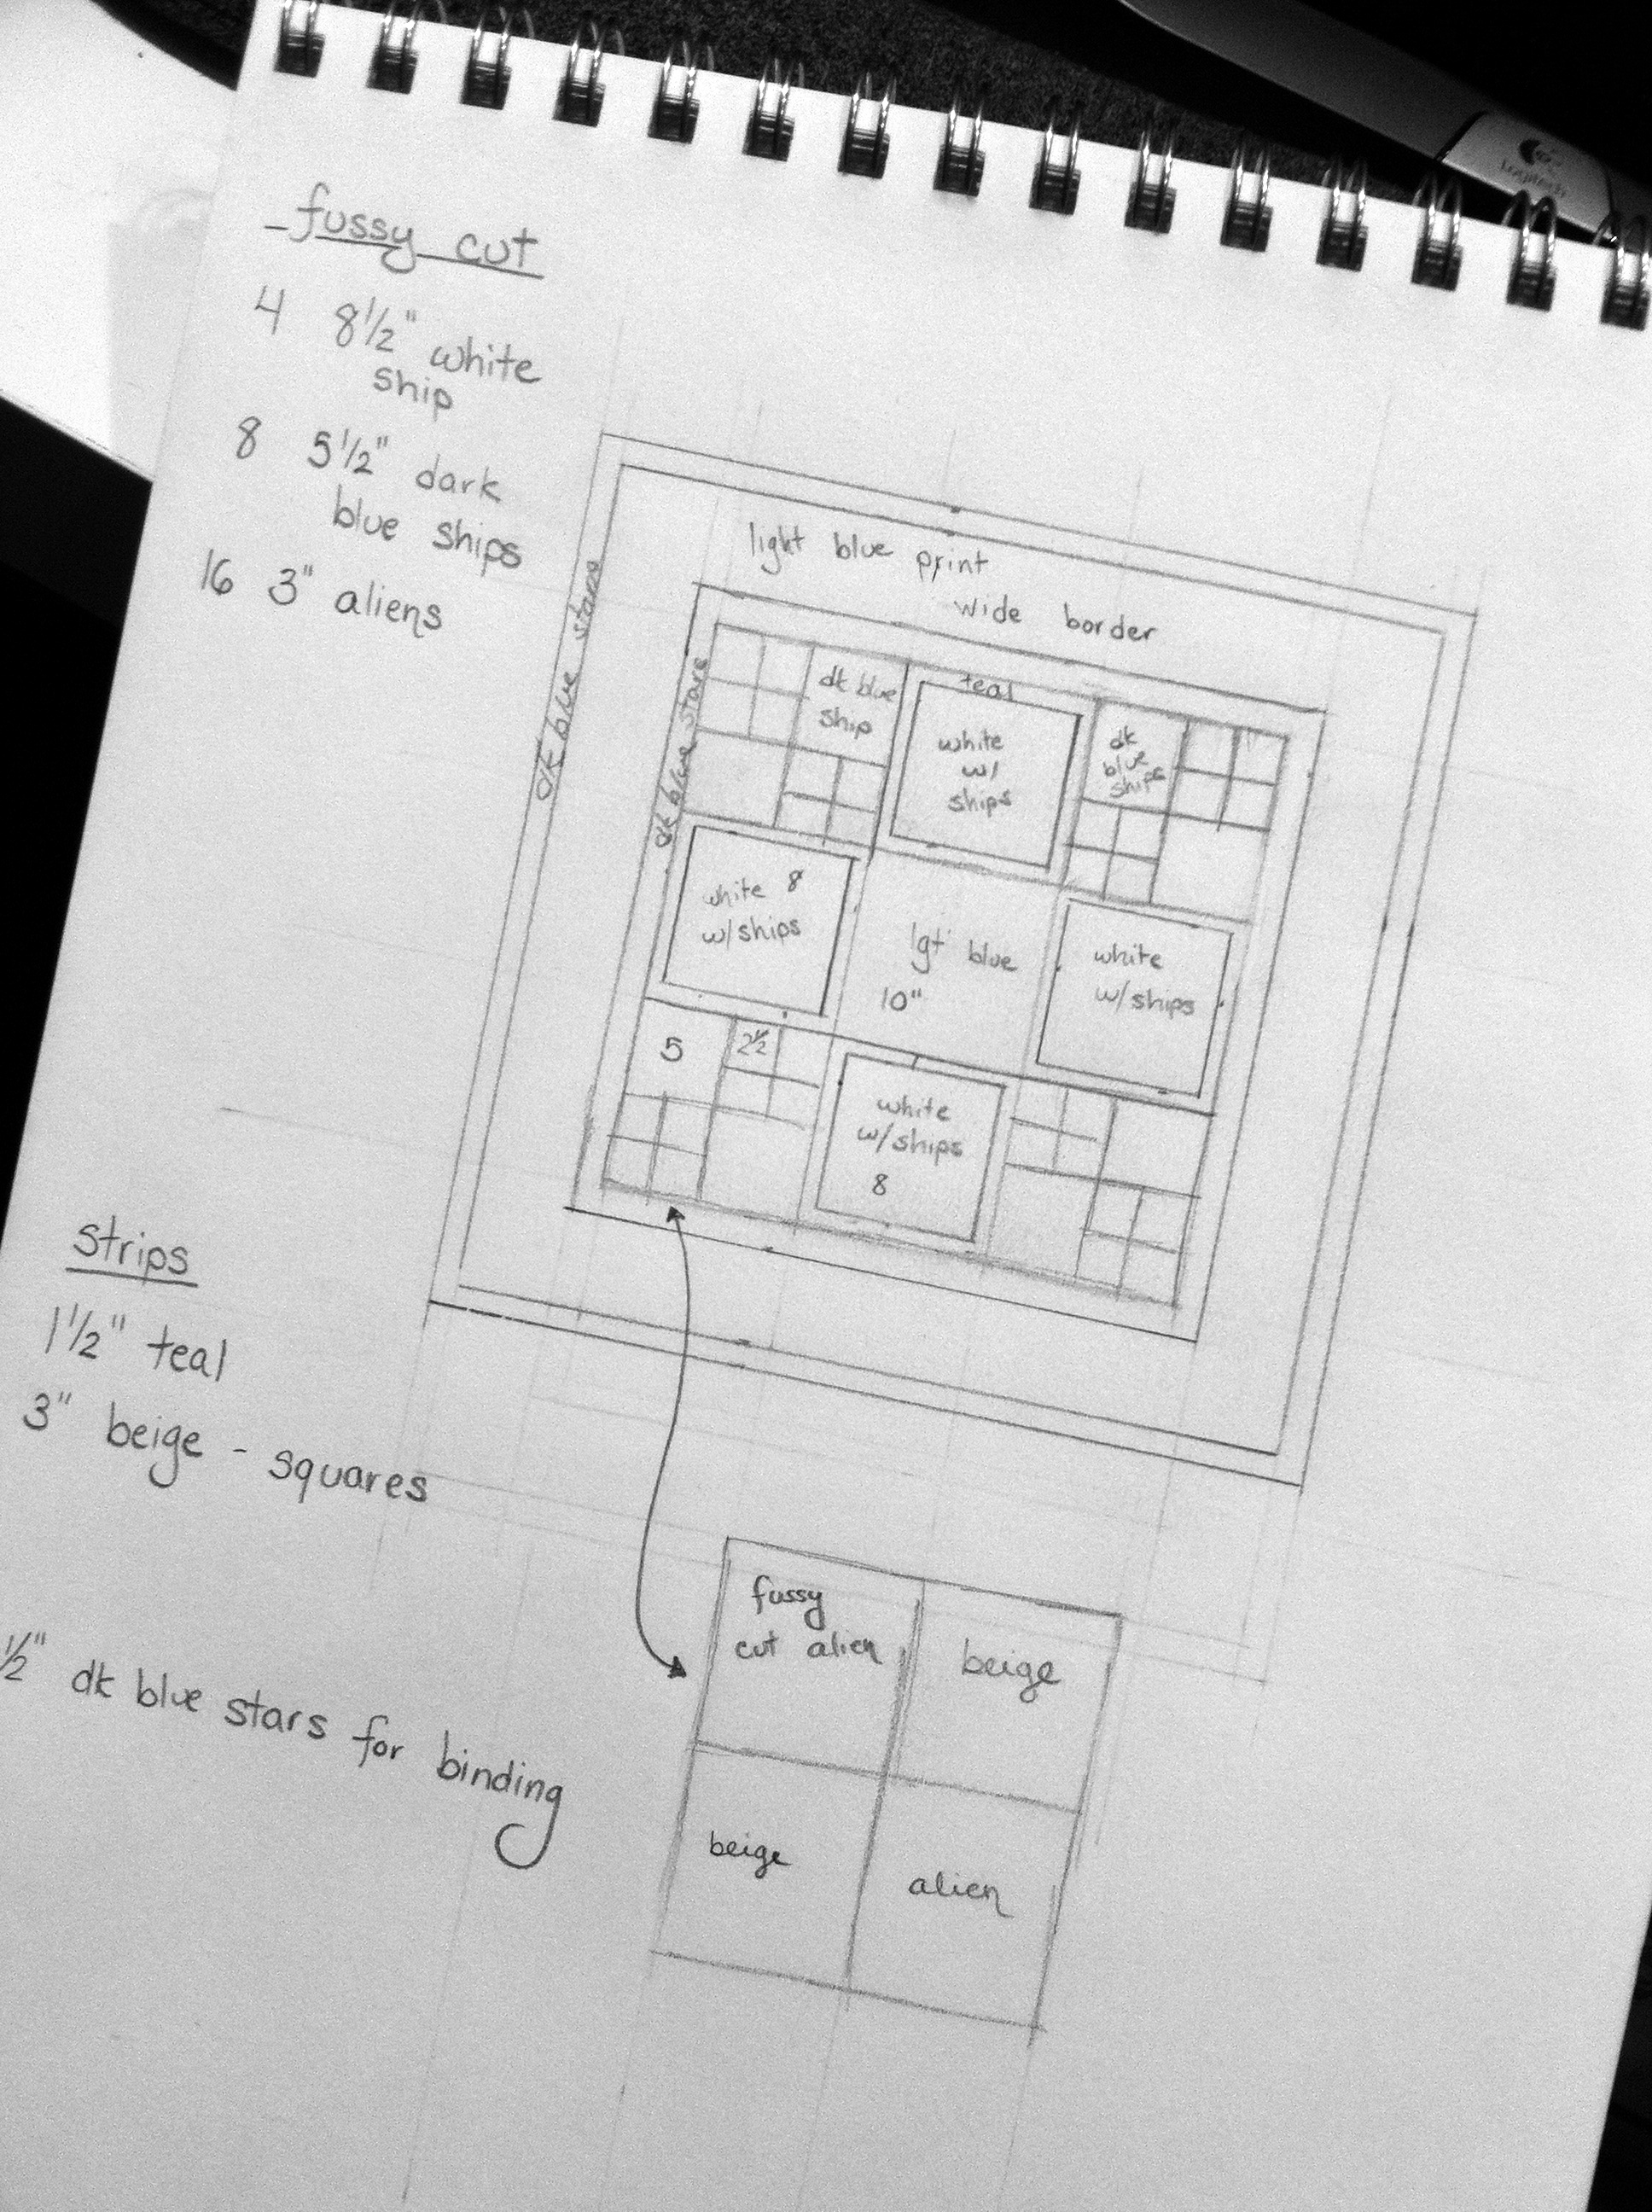 - fussy cut
4 8½" white
ship
8 5½" dark
blue ships
16 3" aliens
light blue print
wide border
dk blue stars
dk blue stars
dk blue
ship
teal
white
w/
ships
dk
blue
ships
white 8
w/ships
lgt blue
10"
white
w/ships
5
2½
white
w/ships
8
strips
1½" teal
3" beige - squares
½" dk blue stars for binding
fussy
cut alien
beige
beige
alien
Logitech